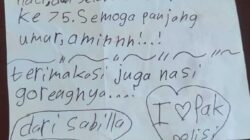 ke 75. Semoga panjang
umur, aminnn!..!
terimakasi juga nasi
gorengnya....
dari Sabilla
I ♡ Pak
polisi